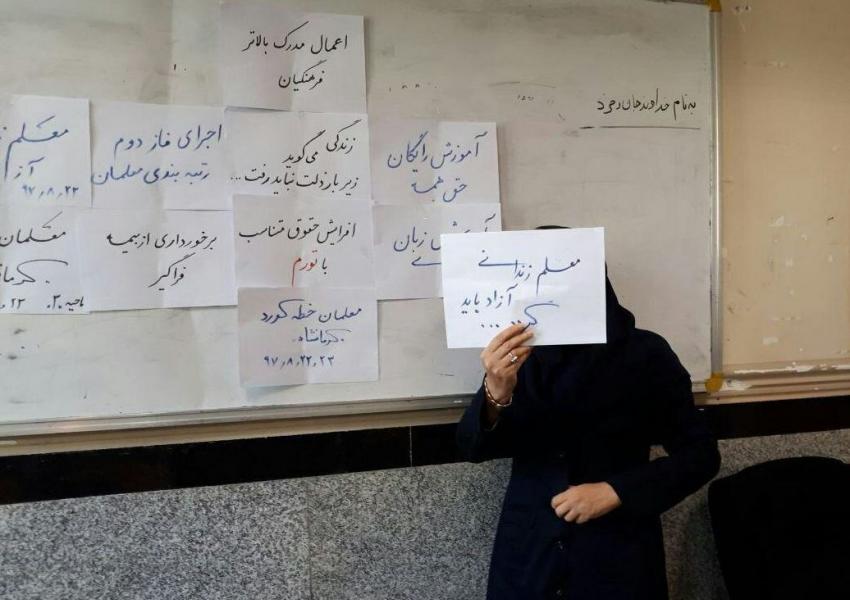 به نام خداوند جان و خرد
اعمال مدرک بالاتر
فرهنگیان
آموزش رایگان
حق همه
زندگی می‌گوید
زیر بار ذلت نباید رفت...
اجرای فاز دوم
رتبه بندی معلمان
معلم
آز
۹۷٫۸٫۲۲
زبان
افزایش حقوق متناسب
با تورم
برخورداری از بیمه
فراگیر
معلمان
کرما
ناحیه ۲۰
معلم زندانی
آزاد باید
گر.....
معلمان خطه کورد
کرمانشاه
۹۷٫۸٫۲۲٫۲۳